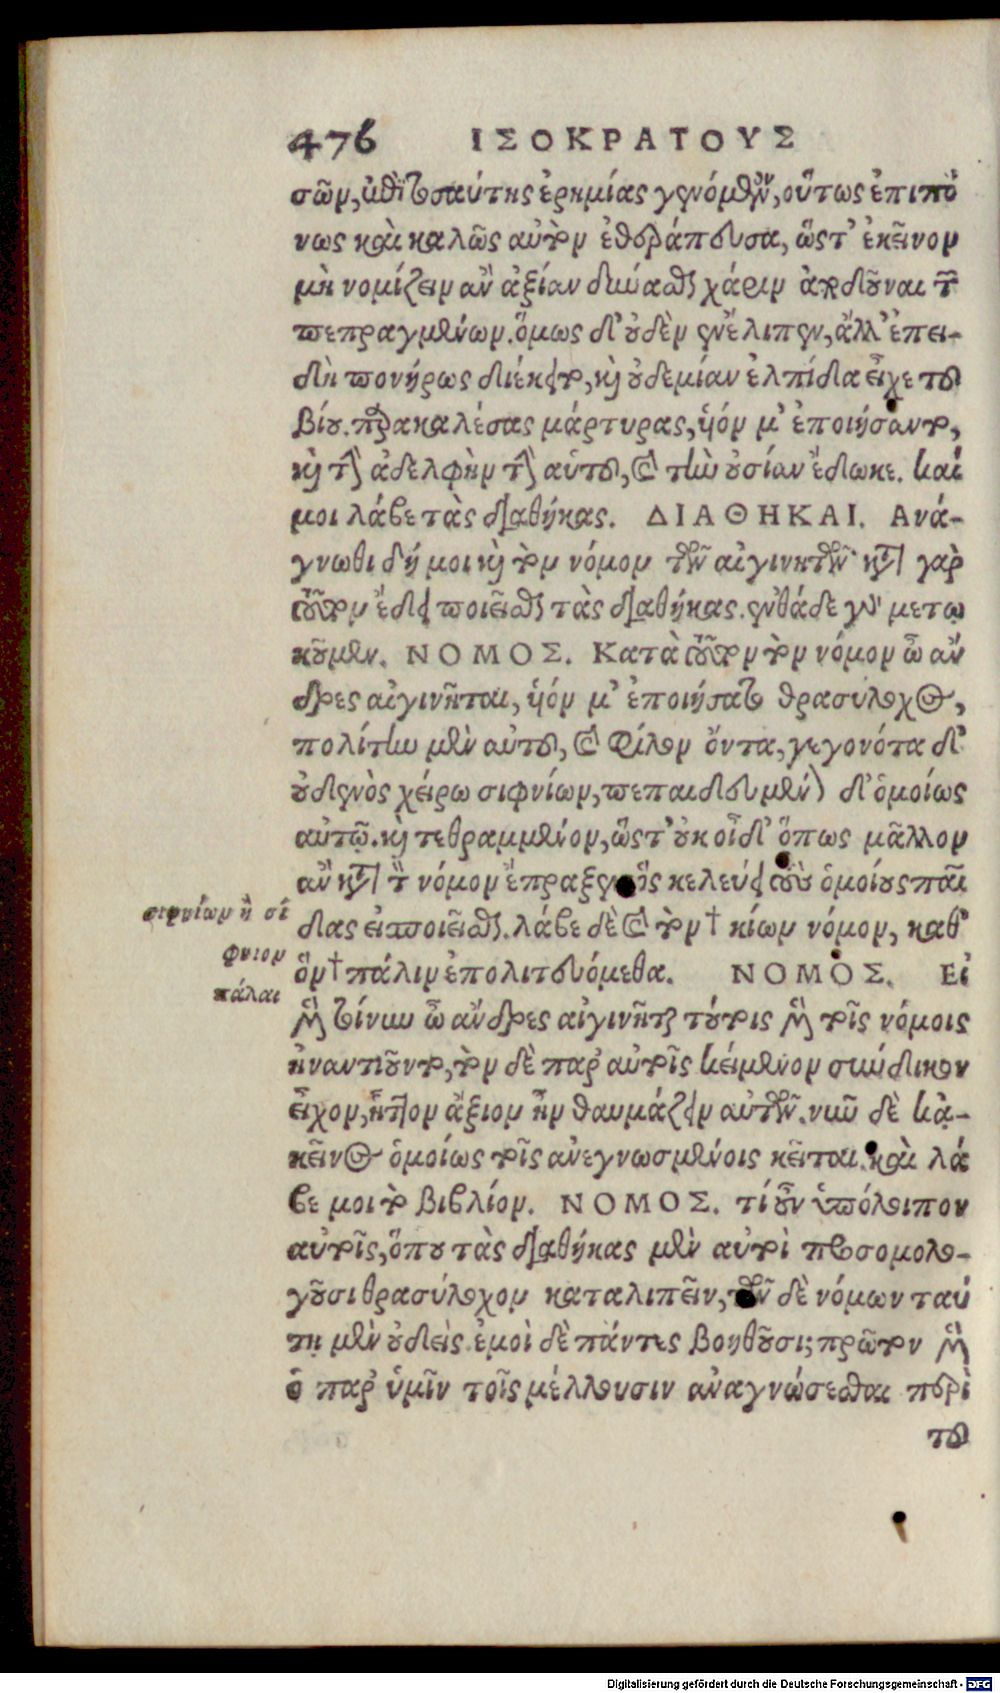 476 ΙΣΟΚΡΑΤΟΥΣ
σῶν, μεθ᾽ τοσαύτης ἐρημίας γενόμενον, οὕτως ἐπιπό
νως καὶ καλῶς αὐτὸν ἐθεράπευσα, ὥστ᾽ ἐκεῖνον
μὴ νομίζειν ἂν ἀξίαν δύνασθαι χάριν ἀποδοῦναι τῶν
πεπραγμένων. ὅμως δ᾽ οὐδὲν ἐνέλιπεν, ἀλλ᾽ ἐπει-
δὴ πονήρως διέκειτο, καὶ οὐδεμίαν ἐλπίδα εἶχε τοῦ
βίου. παρακαλέσας μάρτυρας, ὑόν μ᾽ ἐποιήσαντο,
καὶ τὴν ἀδελφὴν τὴν αὑτοῦ, καὶ τὴν οὐσίαν ἔδωκε. καί
μοι λάβε τὰς διαθήκας. ΔΙΑΘΗΚΑΙ. Ανά-
γνωθι δή μοι καὶ τὸν νόμον τῶν αἰγινητῶν κατὰ γὰρ
τοῦτον ἔδει ποιεῖσθαι τὰς διαθήκας. ἐνθάδε γὰρ μετῳ
κοῦμεν. ΝΟΜΟΣ. Κατὰ τοῦτον τὸν νόμον ὦ ἄν
δρες αἰγινῆται, ὑόν μ᾽ ἐποιήσατο θρασύλοχος,
πολίτην μὲν αὐτοῦ, καὶ φίλον ὄντα, γεγονότα δ᾽
οὐδενὸς χείρω σιφνίων, πεπαιδευμένον δ᾽ ὁμοίως
αὐτῷ. καὶ τεθραμμένον, ὥστ᾽ οὐκ οἶδ᾽ ὅπως μᾶλλον
ἂν κατὰ τὸν νόμον ἔπραξεν ὃς κελεύει τοὺς ὁμοίους παῖ
δας εἰσποιεῖσθαι. λάβε δὲ καὶ τὸν † κίων νόμον, καθ᾽
σιφνίων ἢ σί
φνιον
πάλαι
ὃν † πάλιν ἐπολιτευόμεθα. ΝΟΜΟΣ. Εἰ
μὲν τοίνυν ὦ ἄνδρες αἰγινῆται τούτοις μὲν τοῖς νόμοις
ἠναντιοῦντο, τὸν δὲ παρ᾽ αὐτοῖς κείμενον σύνδικον
εἶχον, ἧττον ἄξιον ἦν θαυμάζειν αὐτῶν. νῦν δὲ κἀ-
κεῖνος ὁμοίως τοῖς ἀνεγνωσμένοις κεῖται. καὶ λά
βε μοι τὸ βιβλίον. ΝΟΜΟΣ. τί οὖν ὑπόλοιπον
αὐτοῖς, ὅπου τὰς διαθήκας μὲν αὐτοὶ προσομολο-
γοῦσι θρασύλοχον καταλιπεῖν, τῶν δὲ νόμων ταύ
τη μὲν οὐδεὶς ἐμοὶ δὲ πάντες βοηθοῦσι; πρῶτον μὲν
ὁ παρ᾽ ὑμῖν τοῖς μέλλουσιν ἀναγνώσεσθαι περὶ
τοῦ
Digitalisierung gefördert durch die Deutsche Forschungsgemeinschaft - DFG